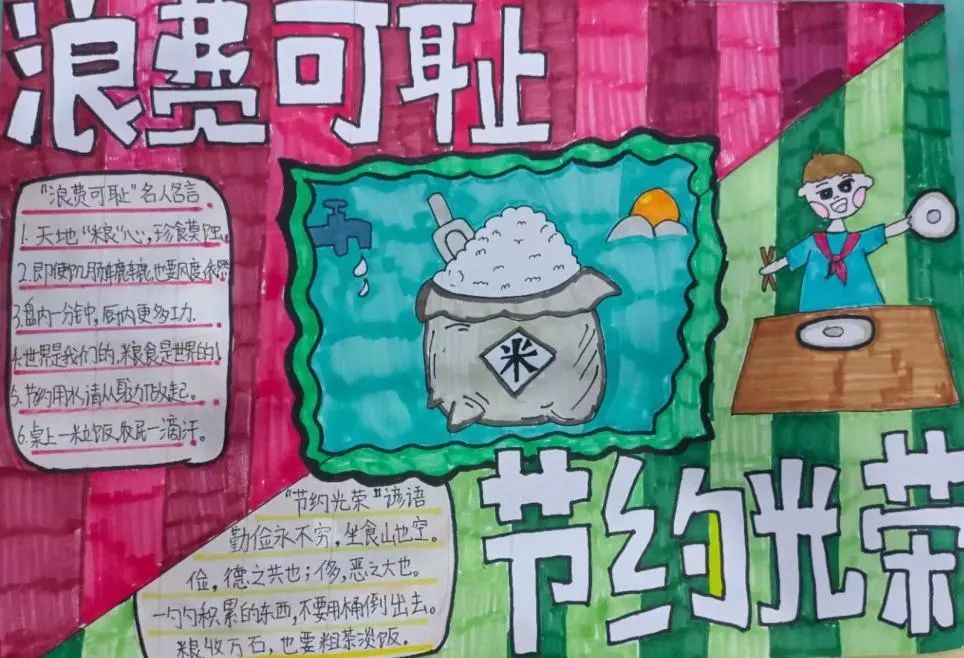 浪费可耻
"浪费可耻"名人名言
1.天地"粮"心,珍食莫
2.即使饥肠辘辘,也要风度依然
3.盘内一分钟,厨内更多功.
4.世界是我们的,粮食是世界的!
5.节约用水,请从做起。
6.桌上一粒饭,农民一滴汗。
米
"节约光荣"谚语
勤俭永不穷,坐食山也空。
俭,德之共也;侈,恶之大也。
一勺勺积累的东西,不要用桶倒出去。
粮收万石,也要粗茶淡饭。
节约光荣